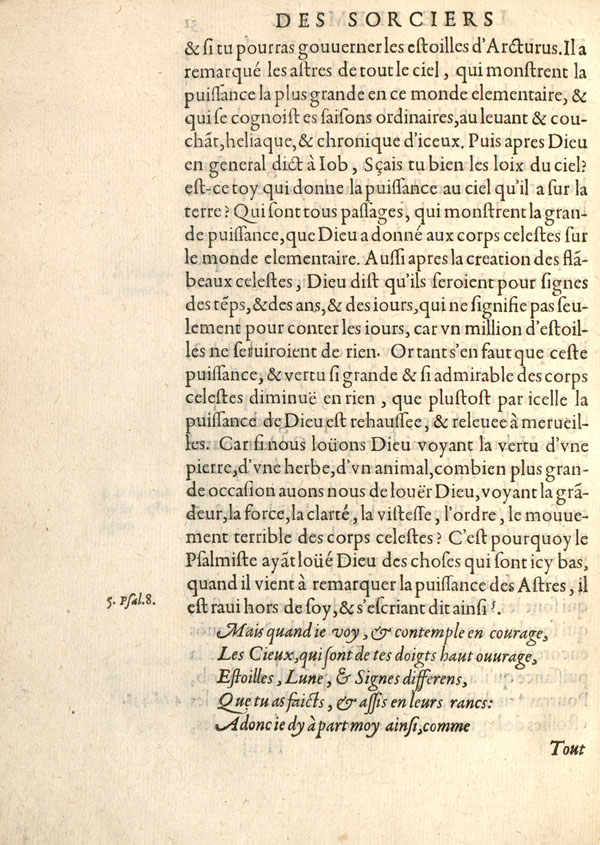 DES SORCIERS
& si tu pourras gouuerner les estoilles d'Arcturus. Il a
remarqué les astres de tout le ciel, qui monstrent la
puissance la plus grande en ce monde elementaire, &
qui se cognoist es saisons ordinaires, au leuant & cou-
chãt, heliaque, & chronique d'iceux. Puis apres Dieu
en general dict à Iob, Sçais tu bien les loix du ciel?
est-ce toy qui donne la puissance au ciel qu'il a sur la
terre? Qui sont tous passages, qui monstrent la gran-
de puissance, que Dieu a donné aux corps celestes sur
le monde elementaire. Aussi apres la creation des flã-
beaux celestes, Dieu dist qu'ils seroient pour signes
des tẽps, & des ans, & des iours, qui ne signifie pas seu-
lement pour conter les iours, car vn million d'estoil-
les ne seruiroient de rien. Or tant s'en faut que ceste
puissance, & vertu si grande & si admirable des corps
celestes diminuë en rien, que plustost par icelle la
puissance de Dieu est rehaussee, & releuee à merueil-
les. Car si nous loüons Dieu voyant la vertu d'vne
pierre, d'vne herbe, d'vn animal, combien plus gran-
de occasion auons nous de louër Dieu, voyant la grã-
deur, la force, la clarté, la vistesse, l'ordre, le mouue-
ment terrible des corps celestes? C'est pourquoy le
Psalmiste ayãt loüé Dieu des choses qui sont icy bas,
quand il vient à remarquer la puissance des Astres, il
5. Psal. 8.
est raui hors de soy, & s'escriant dit ainsi 5.
Mais quand ie voy, & contemple en courage,
Les Cieux, qui sont de tes doigts haut ouurage,
Estoilles, Lune, & Signes differens,
Que tu as faicts, & assis en leurs rancs:
Adonc ie dy à part moy ainsi, comme
Tout